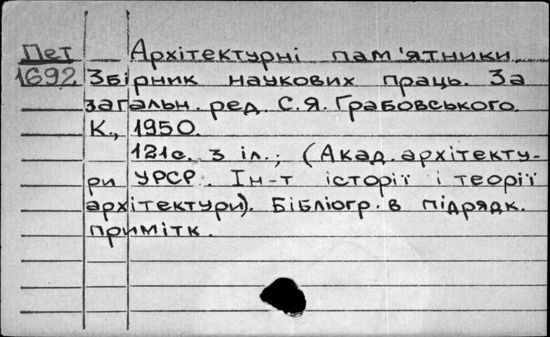 Пет Архітектурні пам'ятники.
1692 Збірник наукових праць. За
загальн. ред. С.Я. Грабовського.
К., 1950.
121с. з іл.; (Акад. архітекту-
ри УРСР. Ін-т історії і теорії
архітектури). Бібліогр. в підрядк.
примітк.